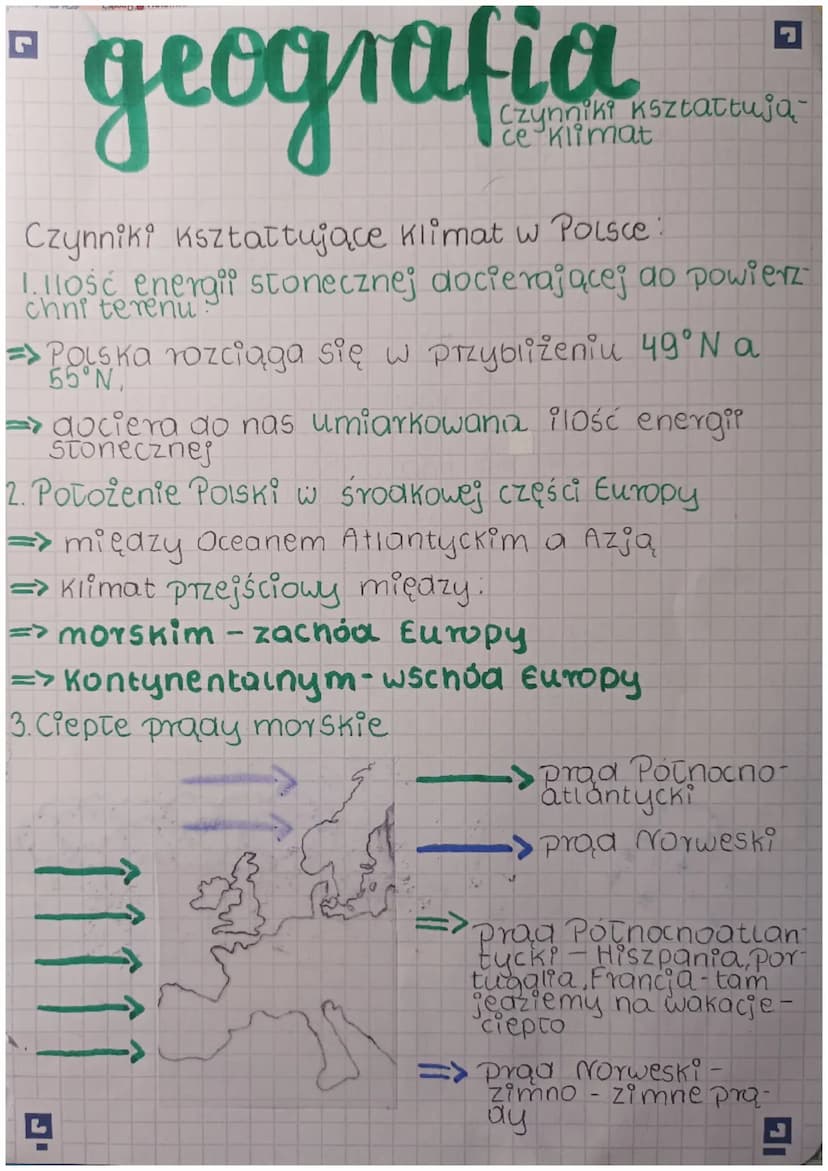 geografia
Czynniki kształtują-
ce klimat
Czynniki kształtujące klimat w Polsce:
1. Ilość energii słonecznej docierającej do powierz-
chni terenu:
=> Polska rozciąga się w przybliżeniu 49°N a
55°N,
=> dociera do nas umiarkowana ilość energii
słonecznej
2. Położenie Polski w środkowej części Europy
=> między Oceanem Atlantyckim a Azją
=> klimat przejściowy między:
=> morskim - zachód Europy
=> kontynentalnym - wschód Europy
3. Ciepłe prądy morskie
prąd Północno-
atlantycki
prąd Norweski
=> prąd Północnoatlan-
tycki - Hiszpania, Por-
tugalia, Francja - tam
jedziemy na wakacje -
ciepło
=> prąd Norweski -
zimno - zimne prą-
dy